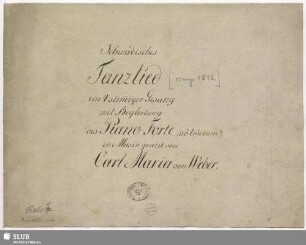 Schwäbisches
Tanzlied
ein 4 stimiger Gesang
mit Begleitung
des Piano Forte (ad libitum)
in Musik gesetzt von
Carl Maria von Weber.
SLUB